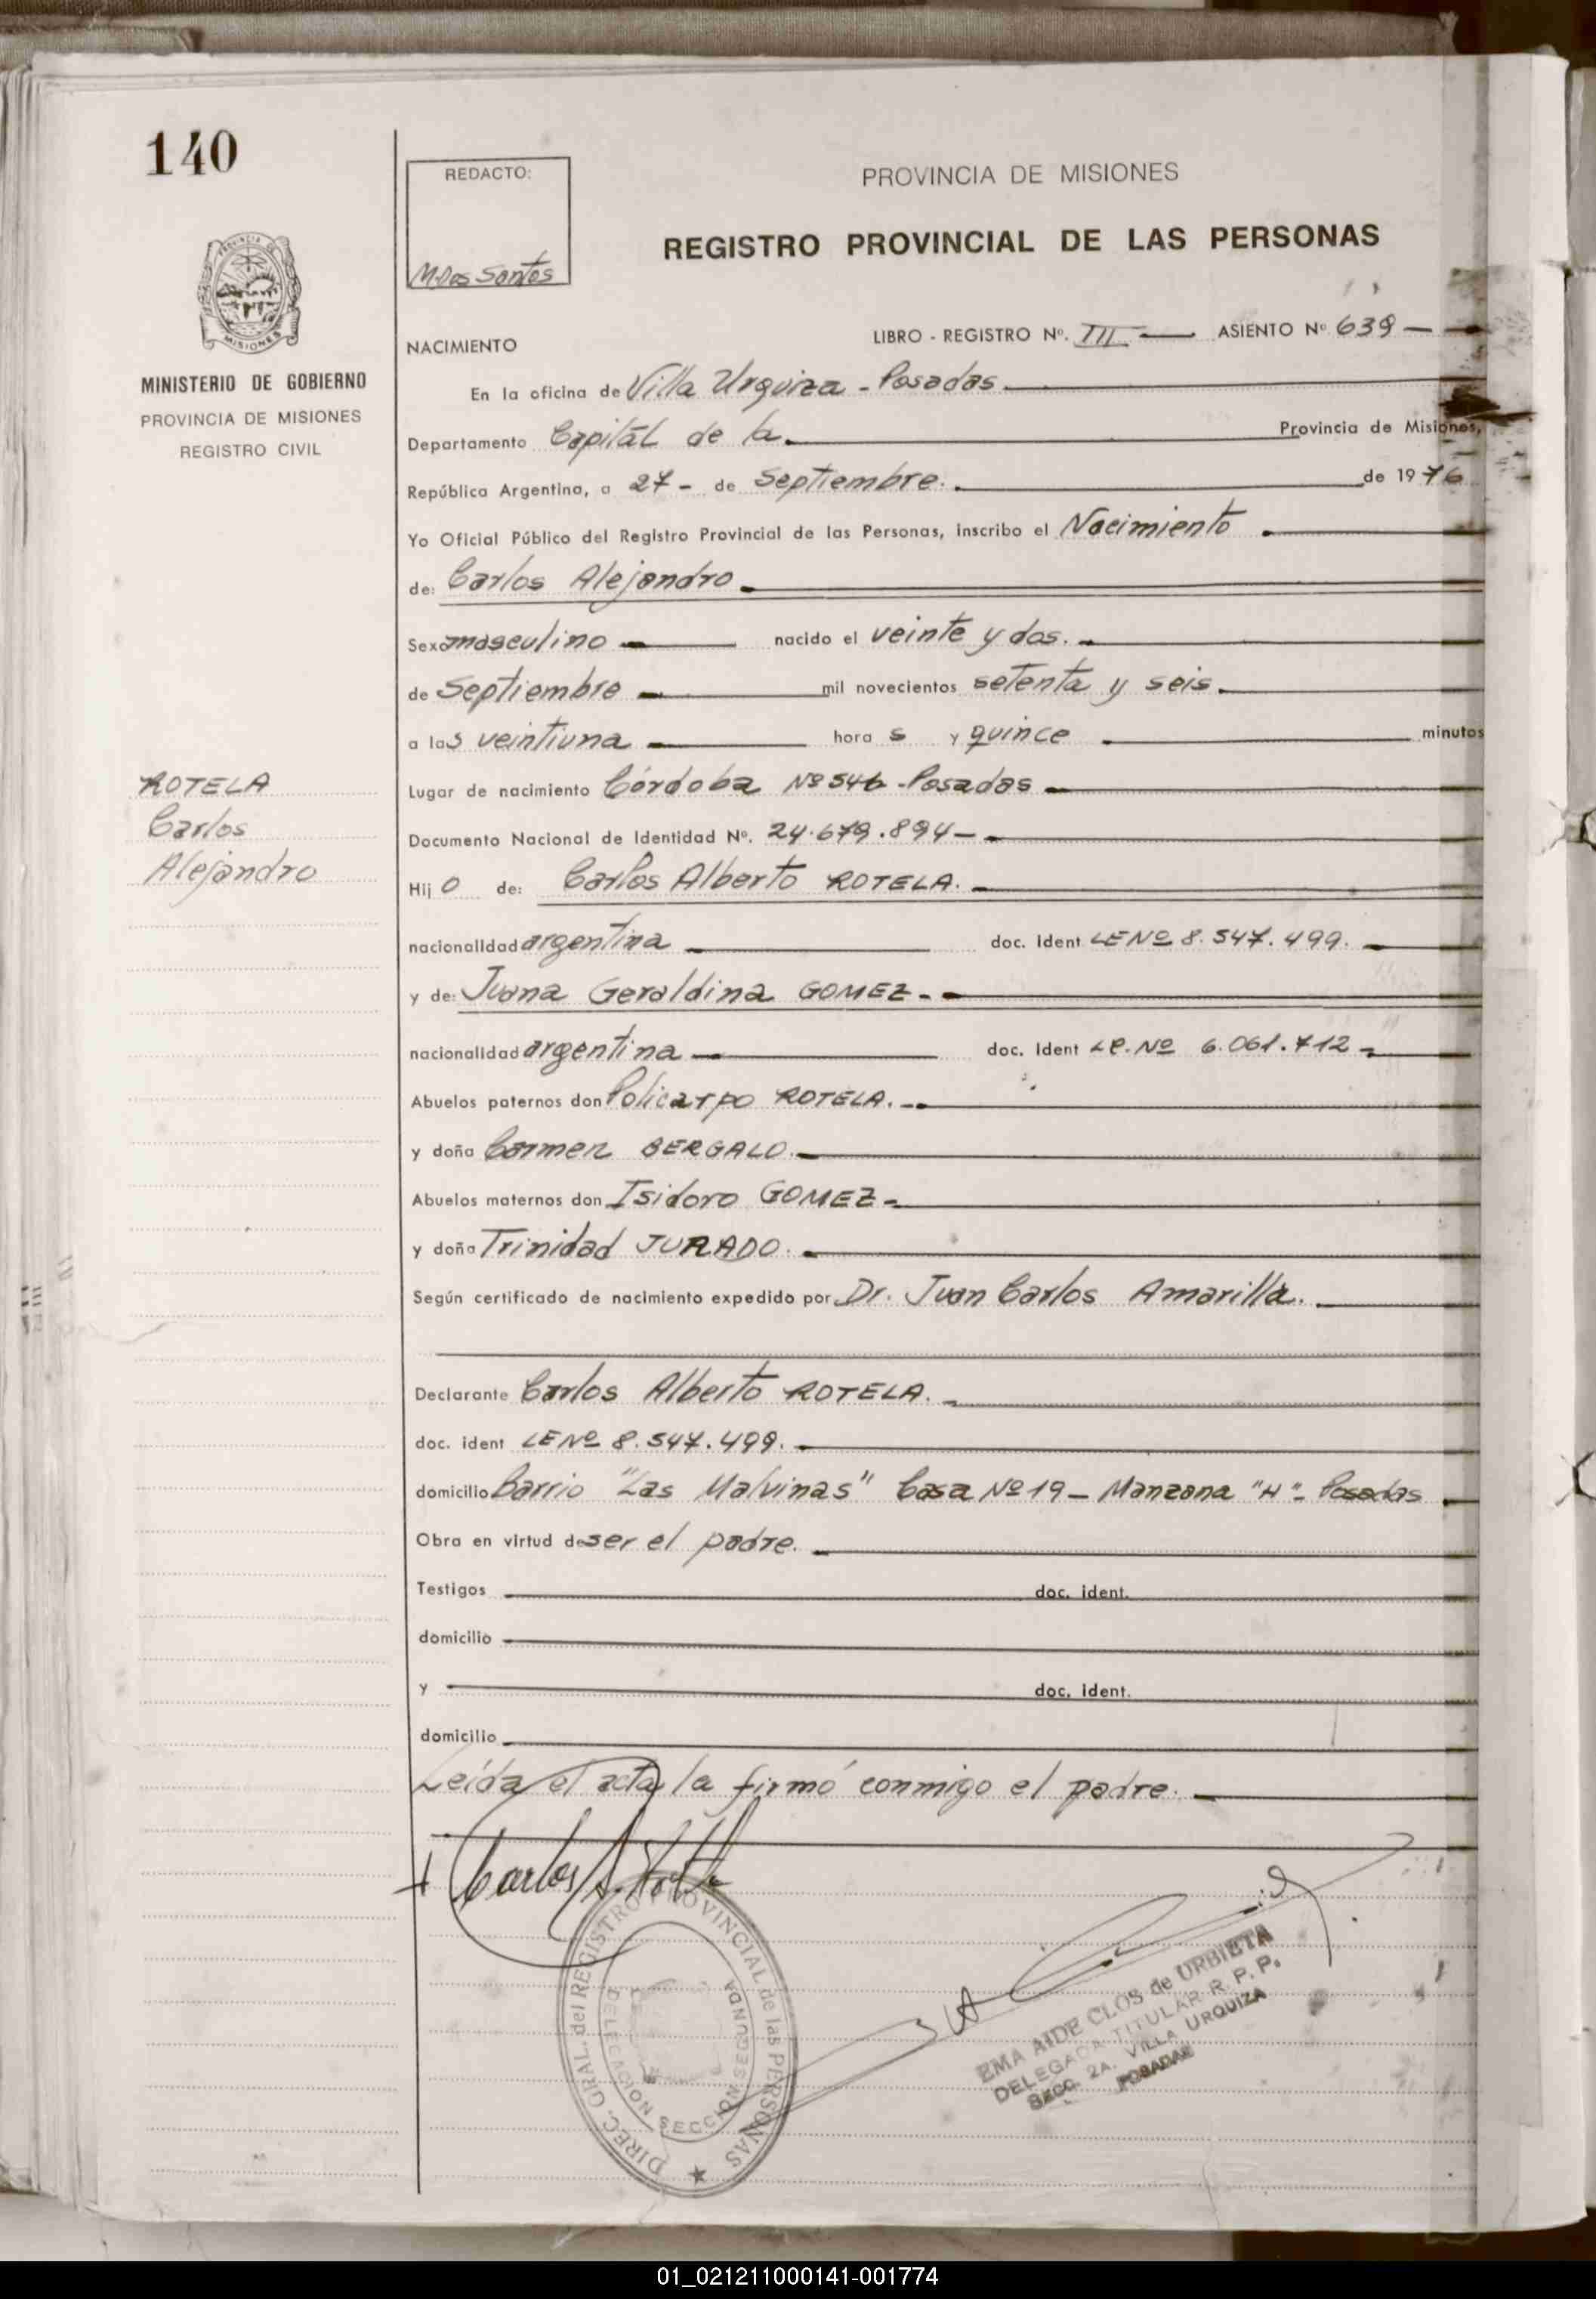 140
REDACTO:
M. Dos Santos
PROVINCIA DE MISIONES
REGISTRO PROVINCIAL DE LAS PERSONAS
PROVINCIA DE
MISIONES
MINISTERIO DE GOBIERNO
PROVINCIA DE MISIONES
REGISTRO CIVIL
NACIMIENTO
LIBRO - REGISTRO Nº. III — ASIENTO Nº 639 —
En la oficina de Villa Urquiza - Posadas.
Departamento Capitál de la. Provincia de Misiones,
República Argentina, a 27 - de Septiembre. de 1976
Yo Oficial Público del Registro Provincial de las Personas, inscribo el Nacimiento
de: Carlos Alejandro
Sexo masculino nacido el veinte y dos.
de Septiembre mil novecientos setenta y seis.
a las veintiuna hora s y quince minutos
Lugar de nacimiento Córdoba Nº 546 - Posadas
Documento Nacional de Identidad Nº. 24.679.894 —
Hij o de: Carlos Alberto ROTELA.
nacionalidad argentina doc. Ident LE Nº 8.547.499.
y de: Juana Geraldina GOMEZ -
nacionalidad argentina doc. Ident LC. Nº 6.061.712 -
Abuelos paternos don Policarpo ROTELA.
y doña Carmen BERGALO.
Abuelos maternos don Isidoro GOMEZ -
y doña Trinidad JURADO.
Según certificado de nacimiento expedido por Dr. Juan Carlos Amarilla.
Declarante Carlos Alberto ROTELA.
doc. ident LE Nº 8.547.499.
domicilio Barrio "Las Malvinas" Casa Nº 19 - Manzana "H" - Posadas
Obra en virtud de ser el padre.
Testigos doc. ident.
domicilio
y doc. ident.
domicilio
Leída el acta la firmó conmigo el padre.
ROTELA
Carlos
Alejandro
Carlos A. Rotela
DIREC. GRAL. del REGISTRO PROVINCIAL de las PERSONAS
DELEGACION SECCION SEGUNDA
EMA AIDE CLOS de URBIETA
DELEGADA TITULAR R. P. P.
SECC. 2A. VILLA URQUIZA
POSADAS
01_021211000141-001774